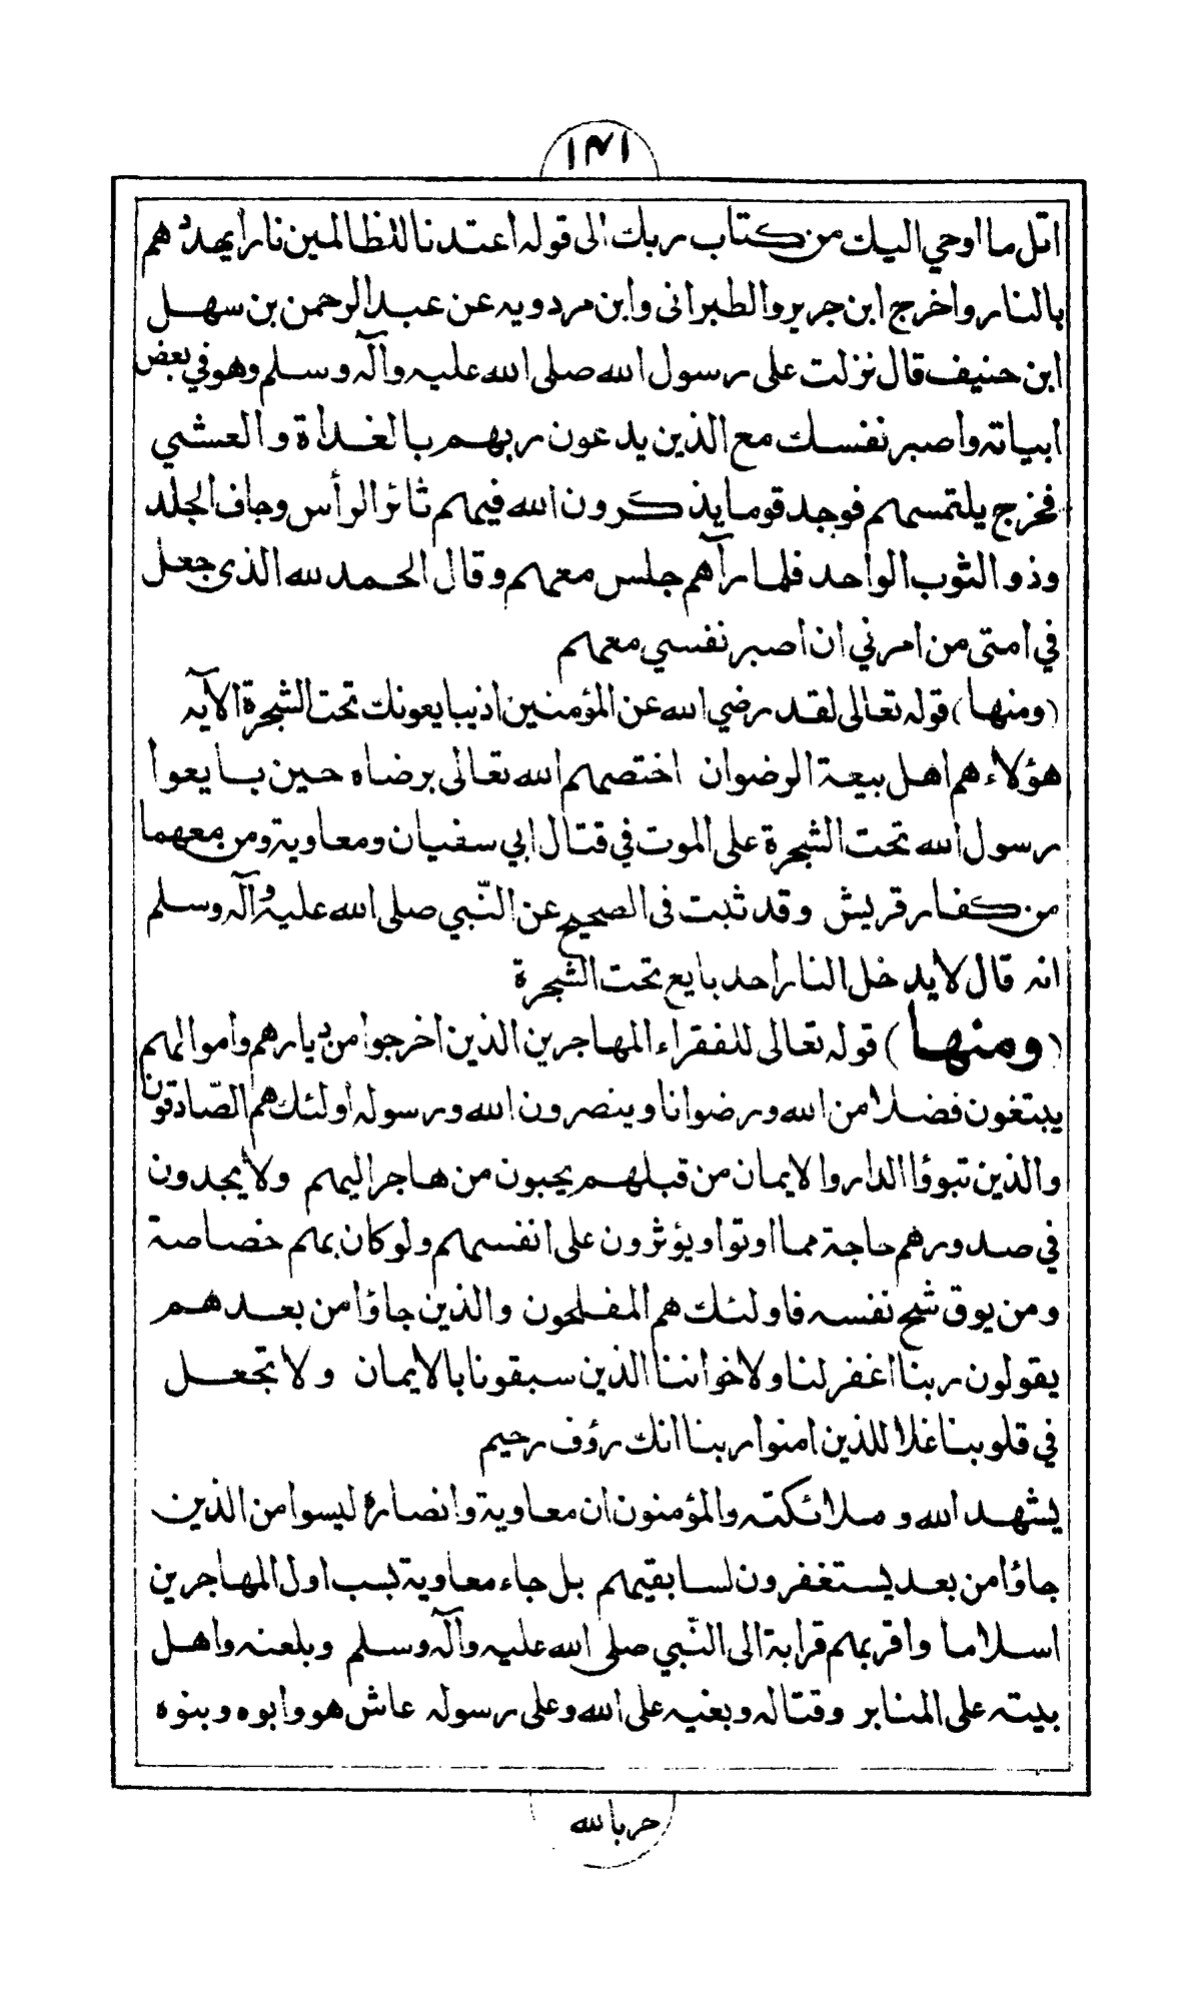 ١٤١
اتل ما اوحي اليك من كتاب ربك الى قوله اعتدنا للظالمين نارا يهددهم
بالنار واخرج ابن جرير والطبرانى وابن مردويه عن عبد الرحمن بن سهل
ابن حنيف قال نزلت على رسول الله صلى الله عليه وآله وسلم وهو في بعض
ابياته واصبر نفسك مع الذين يدعون ربهم بالغداة والعشي
فخرج يلتمسهم فوجد قوما يذكرون الله فيهم ثائر الرأس وجاف الجلد
وذو الثوب الواحد فلما رآهم جلس معهم وقال الحمد لله الذى جعل
في امتى من امرني ان اصبر نفسي معهم
(ومنها) قوله تعالى لقد رضي الله عن المؤمنين اذ يبايعونك تحت الشجرة الآيه
هؤلاء هم اهل بيعة الرضوان اختصهم الله تعالى برضاه حين بايعوا
رسول الله تحت الشجرة على الموت في قتال ابي سفيان ومعاوية ومن معهما
من كفار قريش وقد ثبت فى الصحيح عن النّبي صلى الله عليه وآله وسلم
انه قال لا يدخل النار احد بايع تحت الشجرة
(ومنها) قوله تعالى للفقراء المهاجرين الذين اخرجوا من ديارهم وأموالهم
يبتغون فضلا من الله ورضوانا وينصرون الله ورسوله أولئك هم الصّادقون
والذين تبوؤا الدار والايمان من قبلهم يحبون من هاجر اليهم ولا يجدون
في صدورهم حاجة مما اوتوا ويؤثرون على انفسهم ولو كان بهم خصاصة
ومن يوق شح نفسه فاولئك هم المفلحون والذين جاؤا من بعدهم
يقولون ربنا اغفر لنا ولاخواننا الذين سبقونا بالايمان ولا تجعل
في قلوبنا غلا للذين امنوا ربنا انك رؤف رحيم
يشهد الله وملائكته والمؤمنون ان معاوية وانصاره ليسوا من الذين
جاؤا من بعد يستغفرون لسابقيهم بل جاء معاوية بسب اول المهاجرين
اسلاما واقربهم قرابة الى النّبي صلى الله عليه وآله وسلم وبلعنه واهل
بيته على المنابر وقتاله وبغيه على الله وعلى رسوله عاش هو وابوه وبنوه
حربا لله